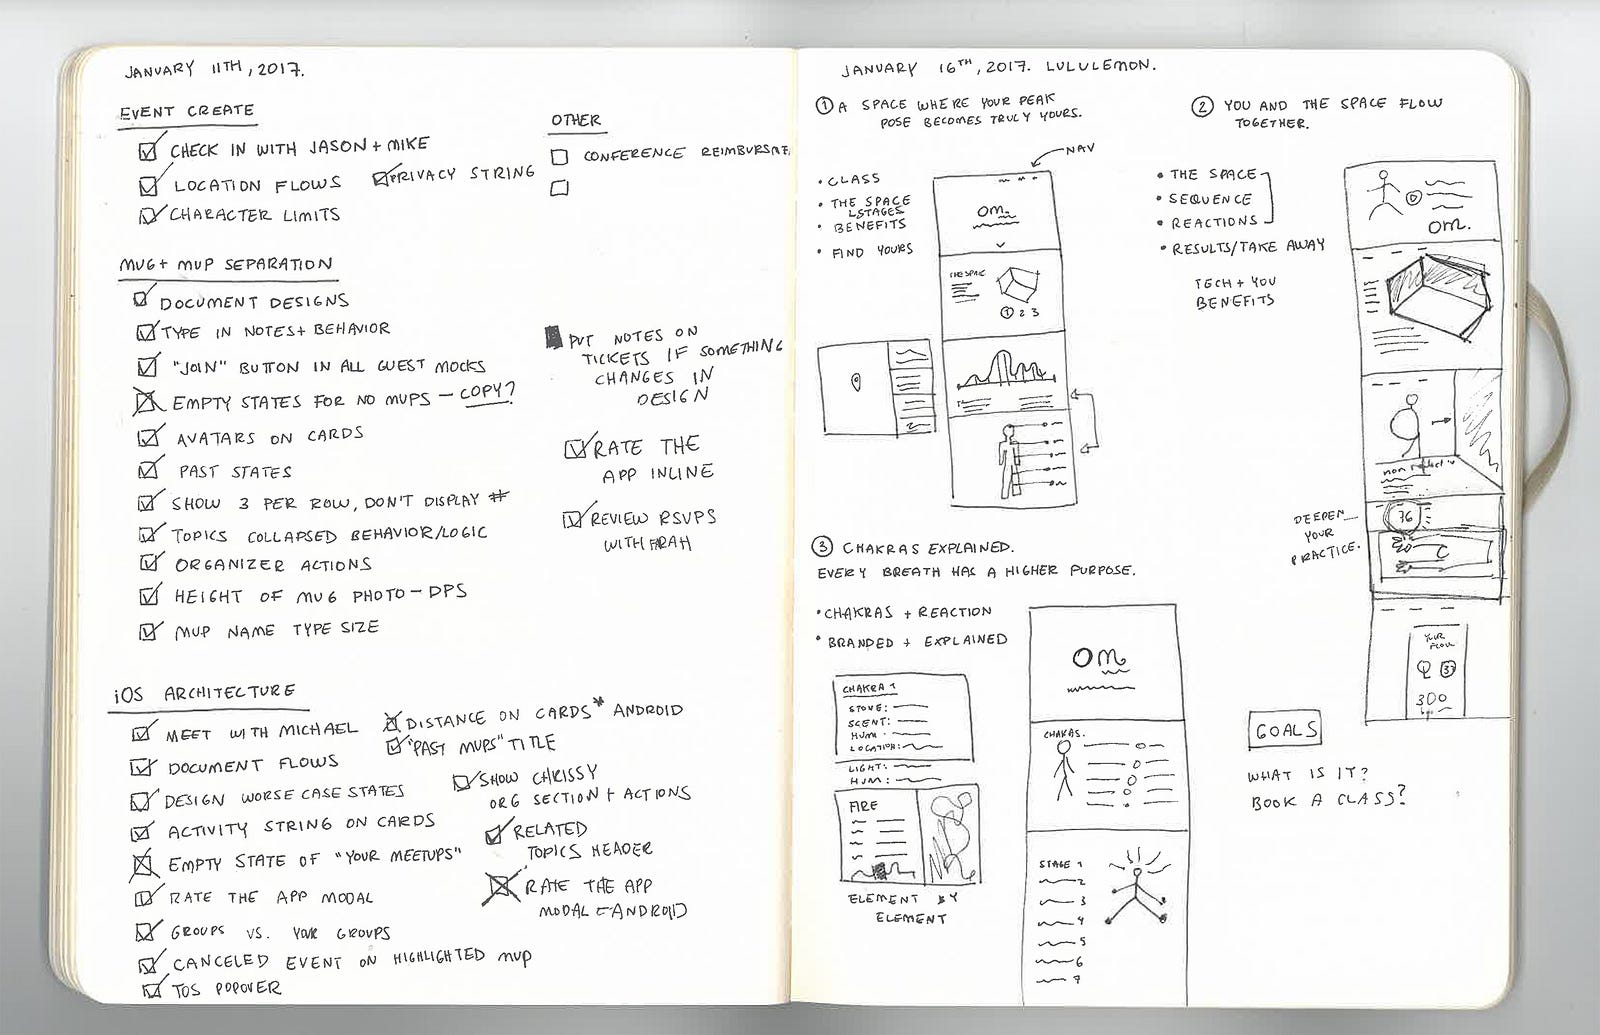 JANUARY 11TH, 2017.
EVENT CREATE
CHECK IN WITH JASON + MIKE
LOCATION FLOWS
PRIVACY STRING
CHARACTER LIMITS
OTHER
CONFERENCE
MUG + MUP SEPARATION
DOCUMENT DESIGNS
TYPE IN NOTES + BEHAVIOR
"JOIN" BUTTON IN ALL GUEST MOCKS
EMPTY STATES FOR NO MUPS – COPY?
AVATARS ON CARDS
PAST STATES
SHOW 3 PER ROW, DON'T DISPLAY #
TOPICS COLLAPSED BEHAVIOR/LOGIC
ORGANIZER ACTIONS
HEIGHT OF MUG PHOTO – DPS
MUP NAME TYPE SIZE
PUT NOTES ON
TICKETS IF SOMETHING
CHANGES IN
DESIGN
RATE THE
APP INLINE
REVIEW RSVPS
WITH
iOS ARCHITECTURE
MEET WITH MICHAEL
DOCUMENT FLOWS
DESIGN WORSE CASE STATES
ACTIVITY STRING ON CARDS
EMPTY STATE OF "YOUR MEETUPS"
RATE THE APP MODAL
GROUPS VS. YOUR GROUPS
CANCELED EVENT ON HIGHLIGHTED MUP
TOS POPOVER
DISTANCE ON CARDS* ANDROID
"PAST MUPS" TITLE
SHOW CHRISSY
ORG SECTION + ACTIONS
RELATED
TOPICS HEADER
RATE THE APP
MODAL – ANDROID
JANUARY 16TH, 2017. LULULEMON.
① A SPACE WHERE YOUR PEAK
POSE BECOMES TRULY YOURS.
NAV
• CLASS
• THE SPACE
STAGES
• BENEFITS
• FIND YOURS
Om.
THE SPACE
① 2 3
② YOU AND THE SPACE FLOW
TOGETHER.
• THE SPACE
• SEQUENCE
• REACTIONS
• RESULTS/TAKE AWAY
TECH + YOU
BENEFITS
Om.
DEEPEN
YOUR
PRACTICE.
76
YOUR
FLOW
300
③ CHAKRAS EXPLAINED.
EVERY BREATH HAS A HIGHER PURPOSE.
• CHAKRAS + REACTION
• BRANDED + EXPLAINED
CHAKRA 1
STONE:
SCENT:
HUM:
LOCATION:
LIGHT:
HUM:
FIRE
ELEMENT BY
ELEMENT
Om
CHAKAS.
STAGE 1
2
3
4
5
6
7
GOALS
WHAT IS IT?
BOOK A CLASS?